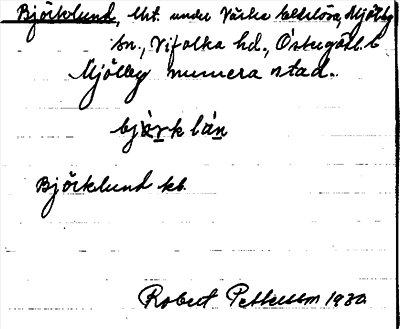 Björklund, lht. under Västra Eklösa, Mjölby
sn., Vifolka hd., Östergötl. l.
Mjölby numera stad.
bjärk lán
Björklund kb.
Robert Pettersson 1930